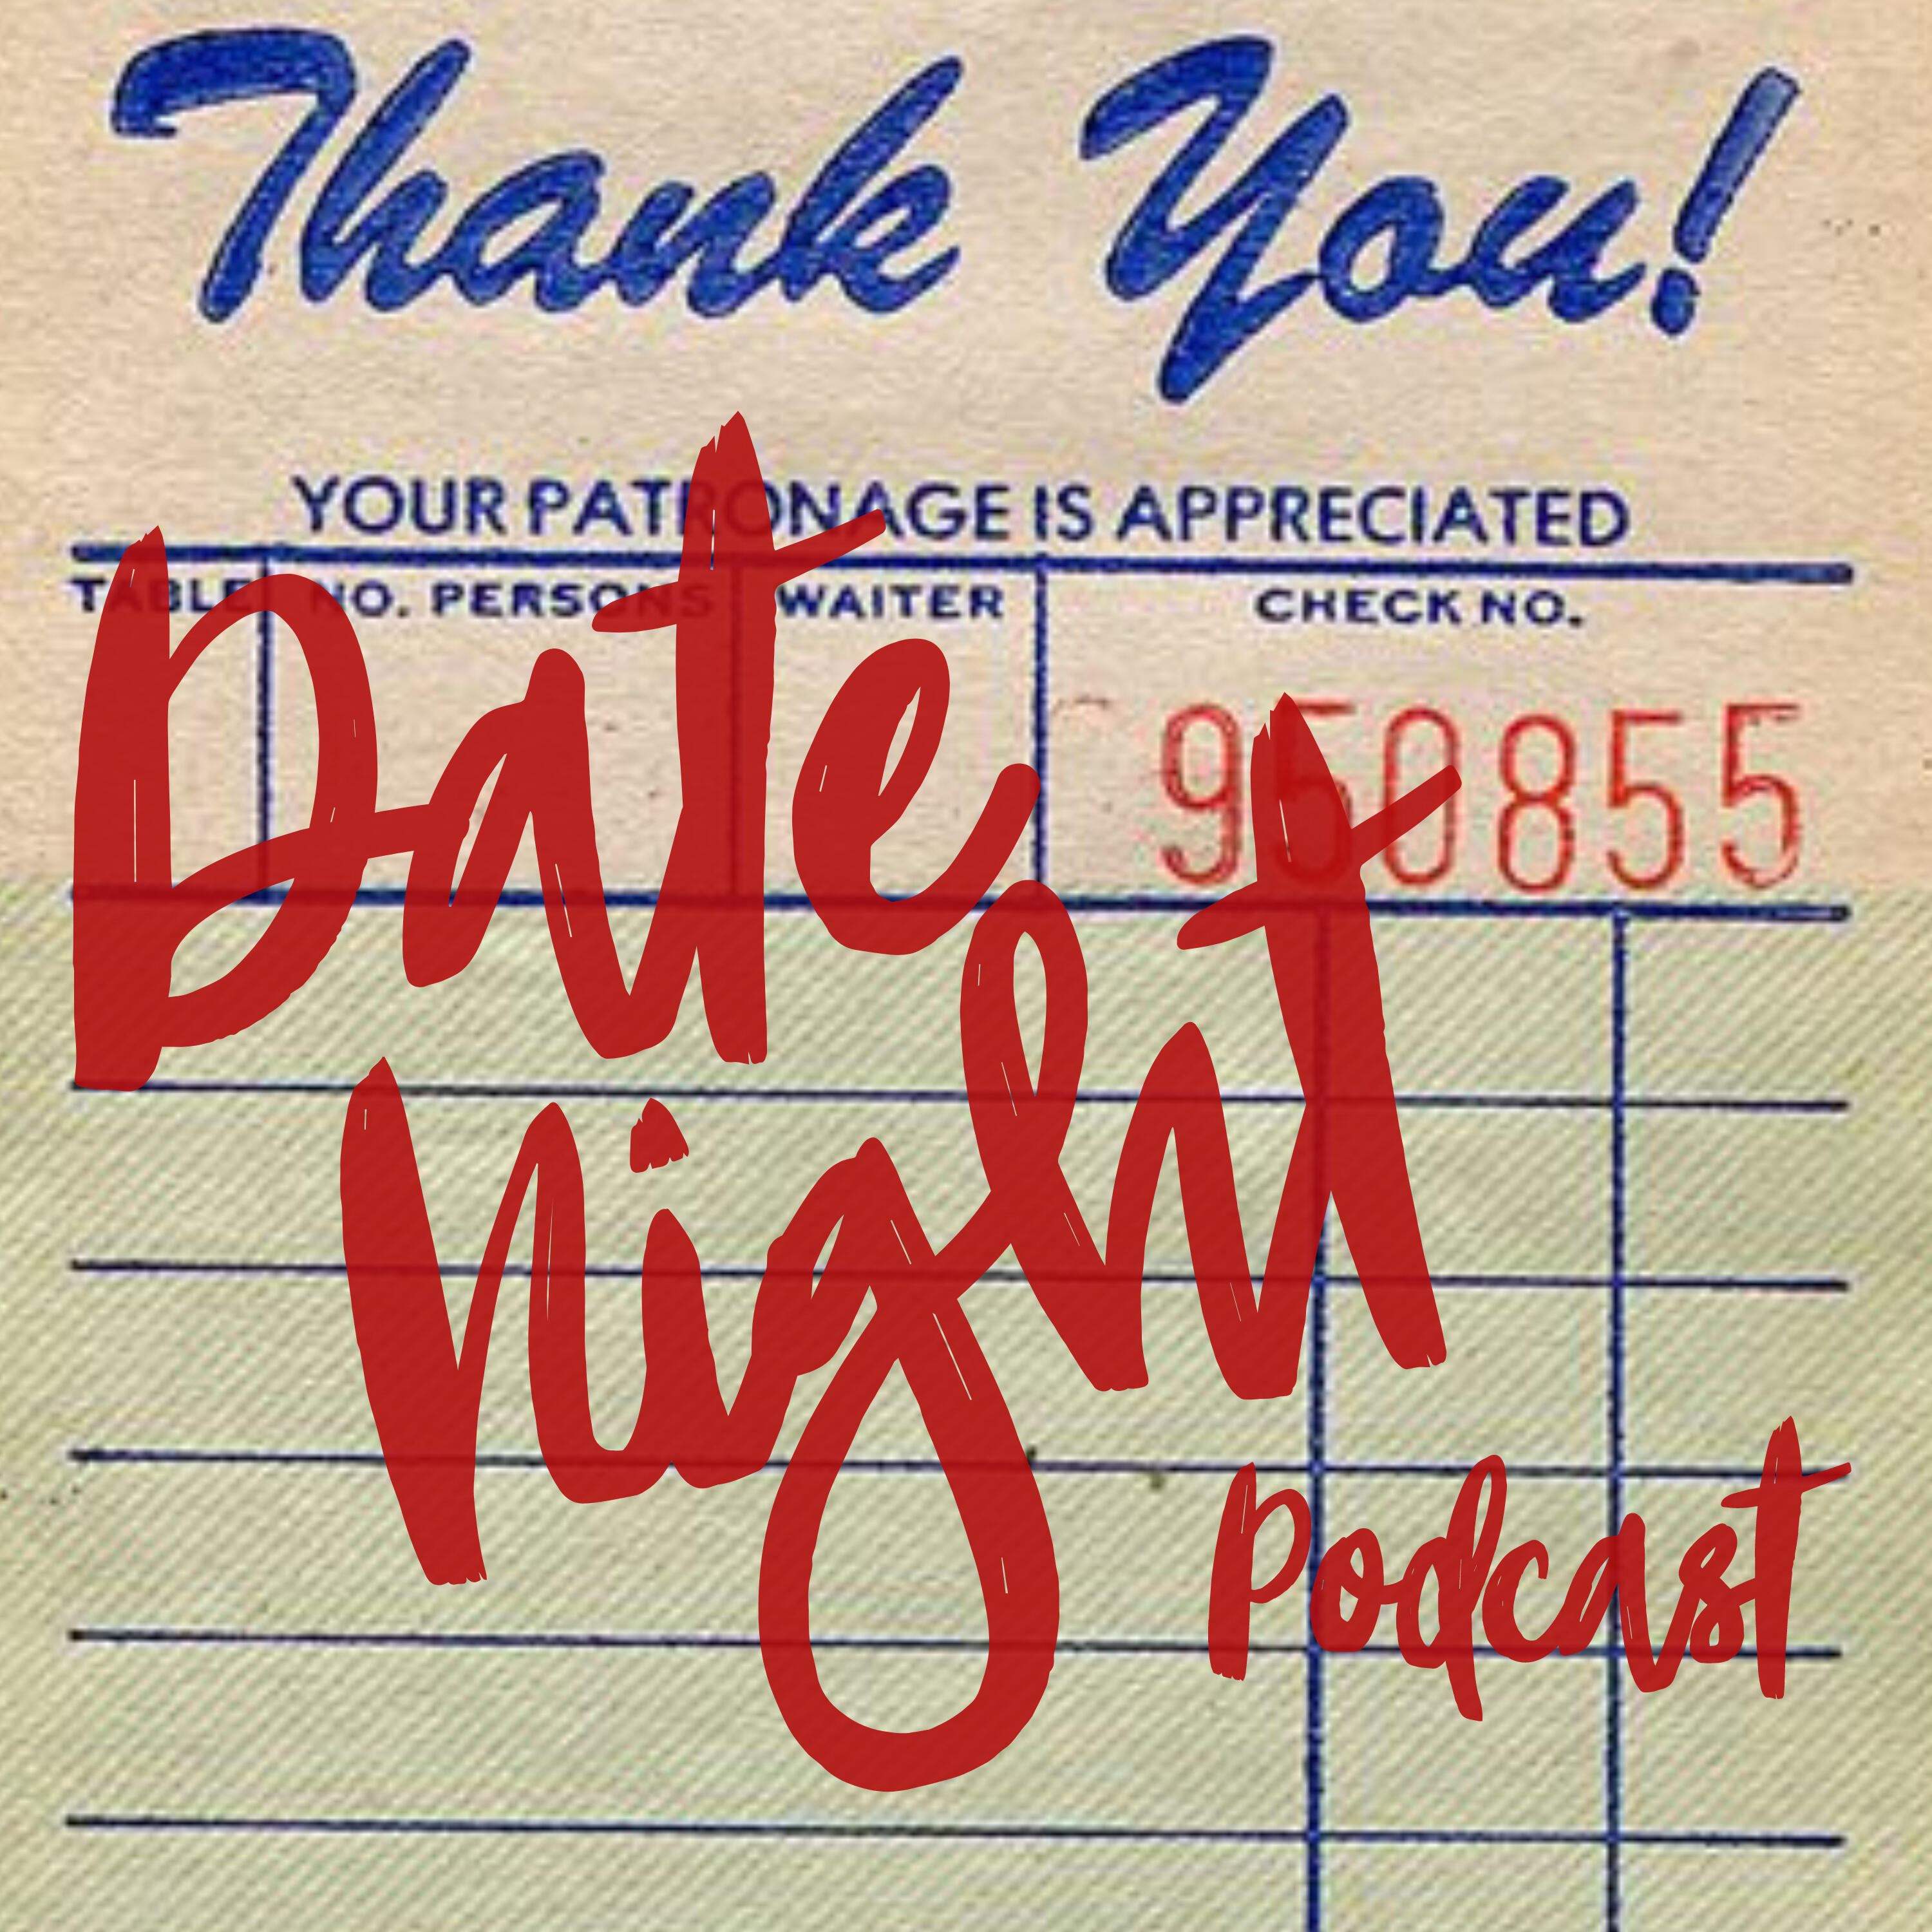 Thank You!
YOUR PATRONAGE IS APPRECIATED
TABLE NO. PERSONS WAITER CHECK NO.
950855
Date
Night
Podcast